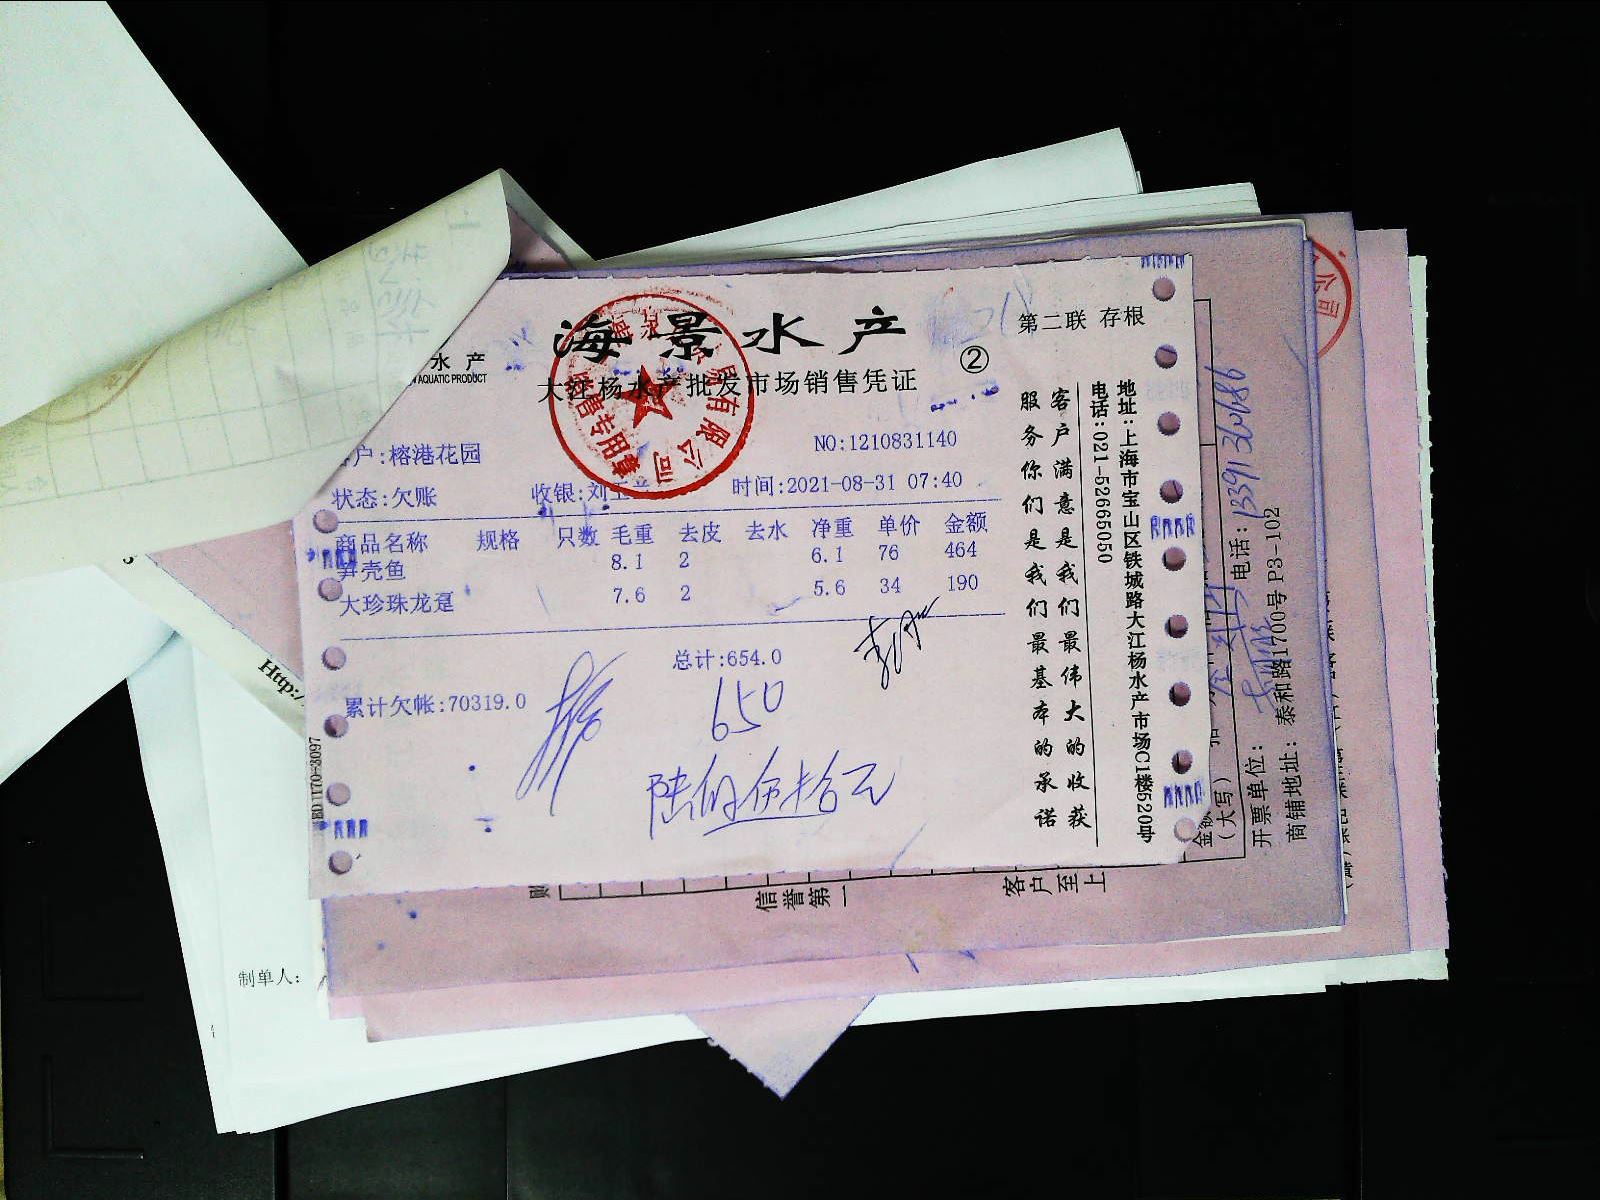 海景水产
第二联 存根
②
水产
AQUATIC PRODUCT
大江杨水产批发市场销售凭证
户:榕港花园
NO:1210831140
状态:欠账
收银:刘
时间:2021-08-31 07:40
商品名称 规格 只数 毛重 去皮 去水 净重 单价 金额
笋壳鱼 8.1 2 6.1 76 464
大珍珠龙趸 7.6 2 5.6 34 190
总计:654.0
累计欠帐:70319.0
650
陆佰伍拾元
客户满意是我们最伟大的收获
服务你们是我们最基本的承诺
地址:上海市宝山区铁城路大江杨水产市场C1楼520号
电话:021-52665050
有限公司
销售专用章
公司
Http:/
制单人:
信誉第一
客户至上
(大写)
开票单位:
电话:13391360686
商铺地址: 泰和路1700号 P3-102